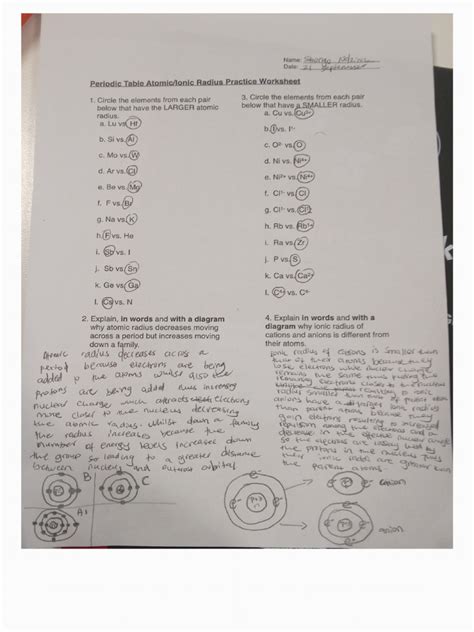 Name:
Date: 21 September
Periodic Table Atomic/Ionic Radius Practice Worksheet
1. Circle the elements from each pair
below that have the LARGER atomic
radius.
a. Lu vs. Hf
b. Si vs. Al
c. Mo vs. W
d. Ar vs. Cl
e. Be vs. Mg
f. F vs. Br
g. Na vs. K
h. F vs. He
i. Sb vs. I
j. Sb vs. Sn
k. Ge vs. Ga
l. Cs vs. N
2. Explain, in words and with a diagram
why atomic radius decreases moving
across a period but increases moving
down a family.
Atomic radius decreases across a
period because electrons are being
added to the atoms whilst also the
protons are being added thus increasing
nuclear charge which attracts electrons
more closer to the nucleus decreasing
the atomic radius. Whilst down a family
the radius increases because the
number of energy levels increases down
the group so leading to a greater distance
between nucleus and outmost orbital
B
C
Al
3. Circle the elements from each pair
below that have a SMALLER radius.
a. Cu vs. Cu²⁺
b. I vs. I¹⁻
c. O²⁻ vs. O
d. Ni vs. Ni²⁺
e. Ni²⁺ vs. Ni⁴⁺
f. Cl¹⁻ vs. Cl
g. Cl¹⁻ vs.
h. Rb vs. Rb¹⁺
i. Ra vs. Zr
j. P vs. S
k. Ca vs. Ca²⁺
l. vs. C
4. Explain in words and with a
diagram why ionic radius of
cations and anions is different from
their atoms.
Ionic radius of cations is smaller than
that of their atoms because they
lose electrons while nuclear charge
remains the same thus pulling the
remaining electrons closer to the nucleus
anions have
than parent atoms because they
gain electrons resulting to increased
repulsion among the electrons and a
decrease in the effective nuclear charge
so the electrons are
the protons in the nucleus thus
their ionic radii are greater than
the parent atoms.
cation
anion